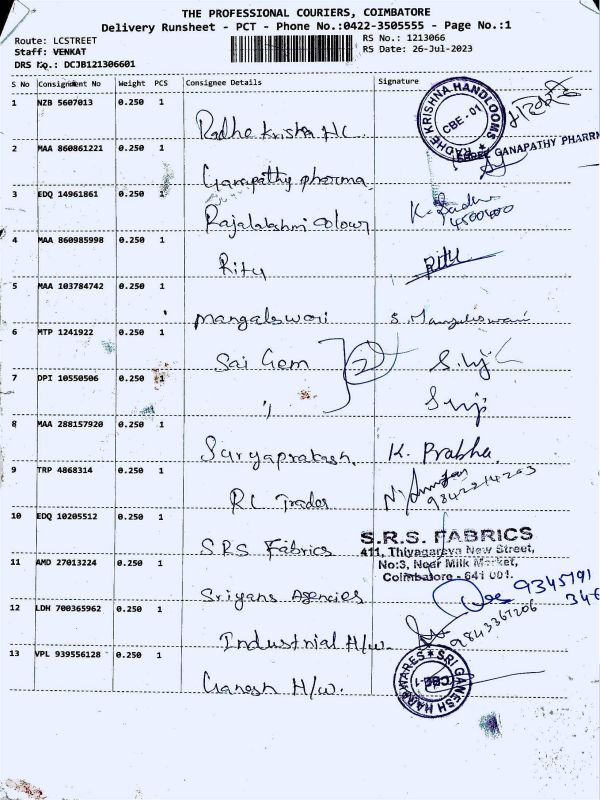 THE PROFESSIONAL COURIERS, COIMBATORE
Delivery Runsheet - PCT - Phone No.:0422-3505555 - Page No.:1
Route: LCSTREET
RS No.: 1213066
Staff: VENKAT
RS Date: 26-Jul-2023
DRS No.: DCJB121306601
S No Consignment No Weight PCS Consignee Details Signature
1 NZB 5607013 0.250 1
Radhe Krishna H/C
RADHE KRISHNA HANDLOOMS
CBE - 01
2 MAA 860861221 0.250 1
SHREE GANAPATHY PHARM
Ganapathy pharma
3 EDQ 14961861 0.250 1
Rajalakshmi colour
4500400
4 MAA 860985998 0.250 1
Ritu Ritu
5 MAA 103784742 0.250 1
Mangalswari S. Mangaleswari
6 MTP 1241922 0.250 1
Sai Gem 2
7 DPI 10550506 0.250 1
"
8 MAA 288157920 0.250 1
Suryaprakash. K. Prabha.
9 TRP 4868314 0.250 1
RC Trader
9842214203
10 EDQ 10205512 0.250 1
SRS Fabrics
S.R.S. FABRICS
411, Thiyagaraya New Street,
No:3, Near Milk Market,
Coimbatore - 641 001.
11 AMD 27013224 0.250 1
Sriyans Agencies
9345791
346
12 LDH 700365962 0.250 1
Industrial H/w.
9843367206
13 VPL 939556128 0.250 1
Ganesh H/w.
SRI GANESH HARDWARES
CBE-1